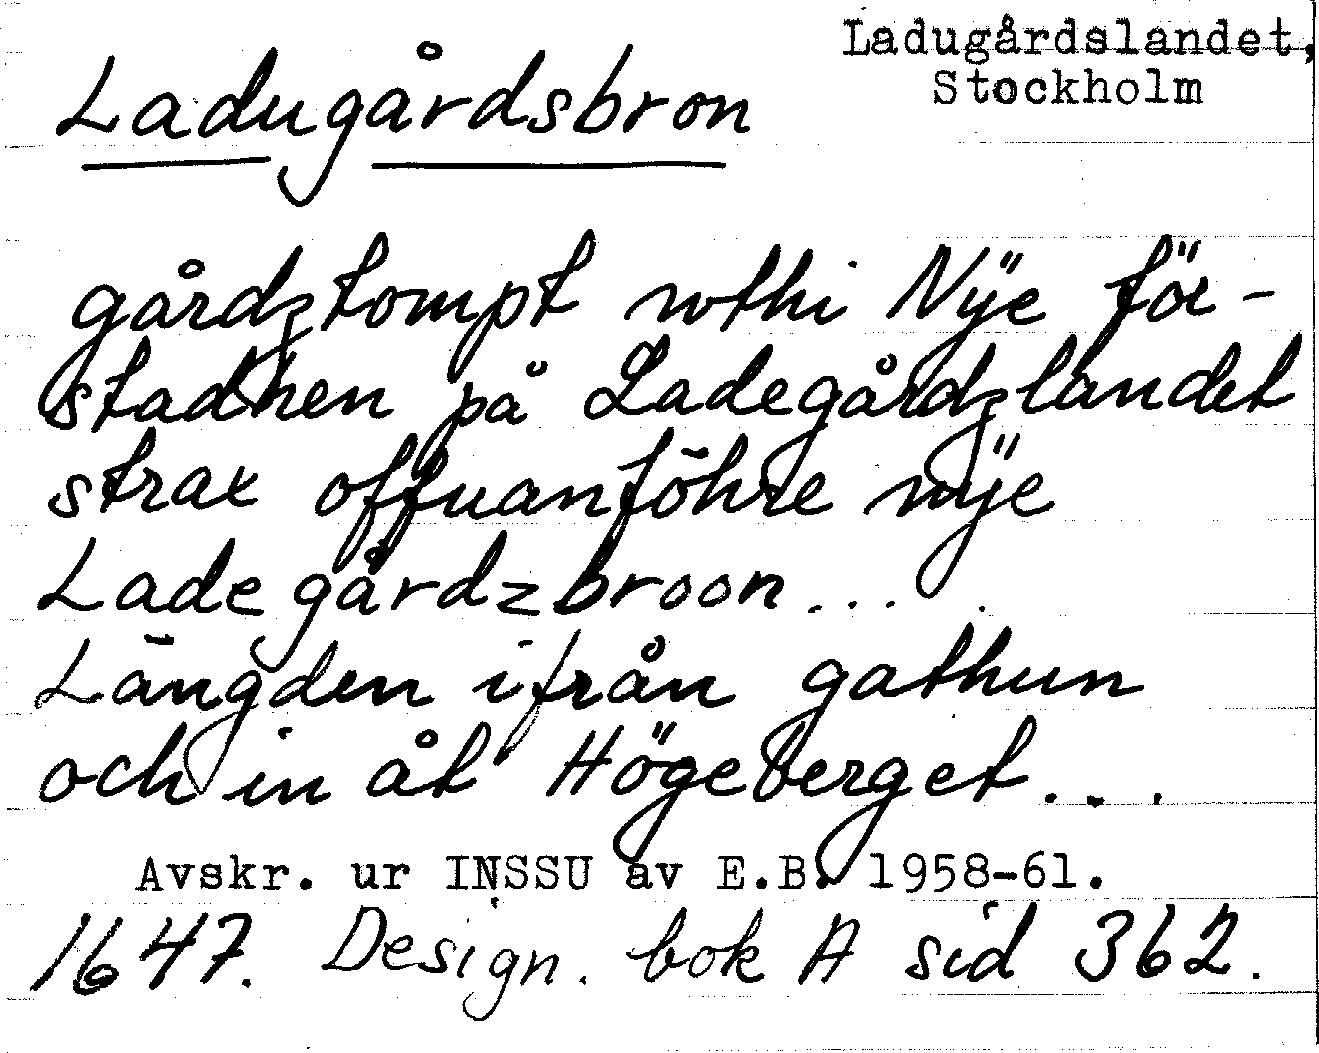 Ladugårdslandet,
Stockholm
Ladugårdsbron
gårdztompt wthi Nÿe för-
stadhen på Ladegårdzlandet
strax offuanföhre nÿe
Ladegårdzbroon...
Längden ifrån gathun
och in åt Högeberget...
Avskr. ur INSSU av E.B. 1958-61.
1647. Design. bok A sid 362.